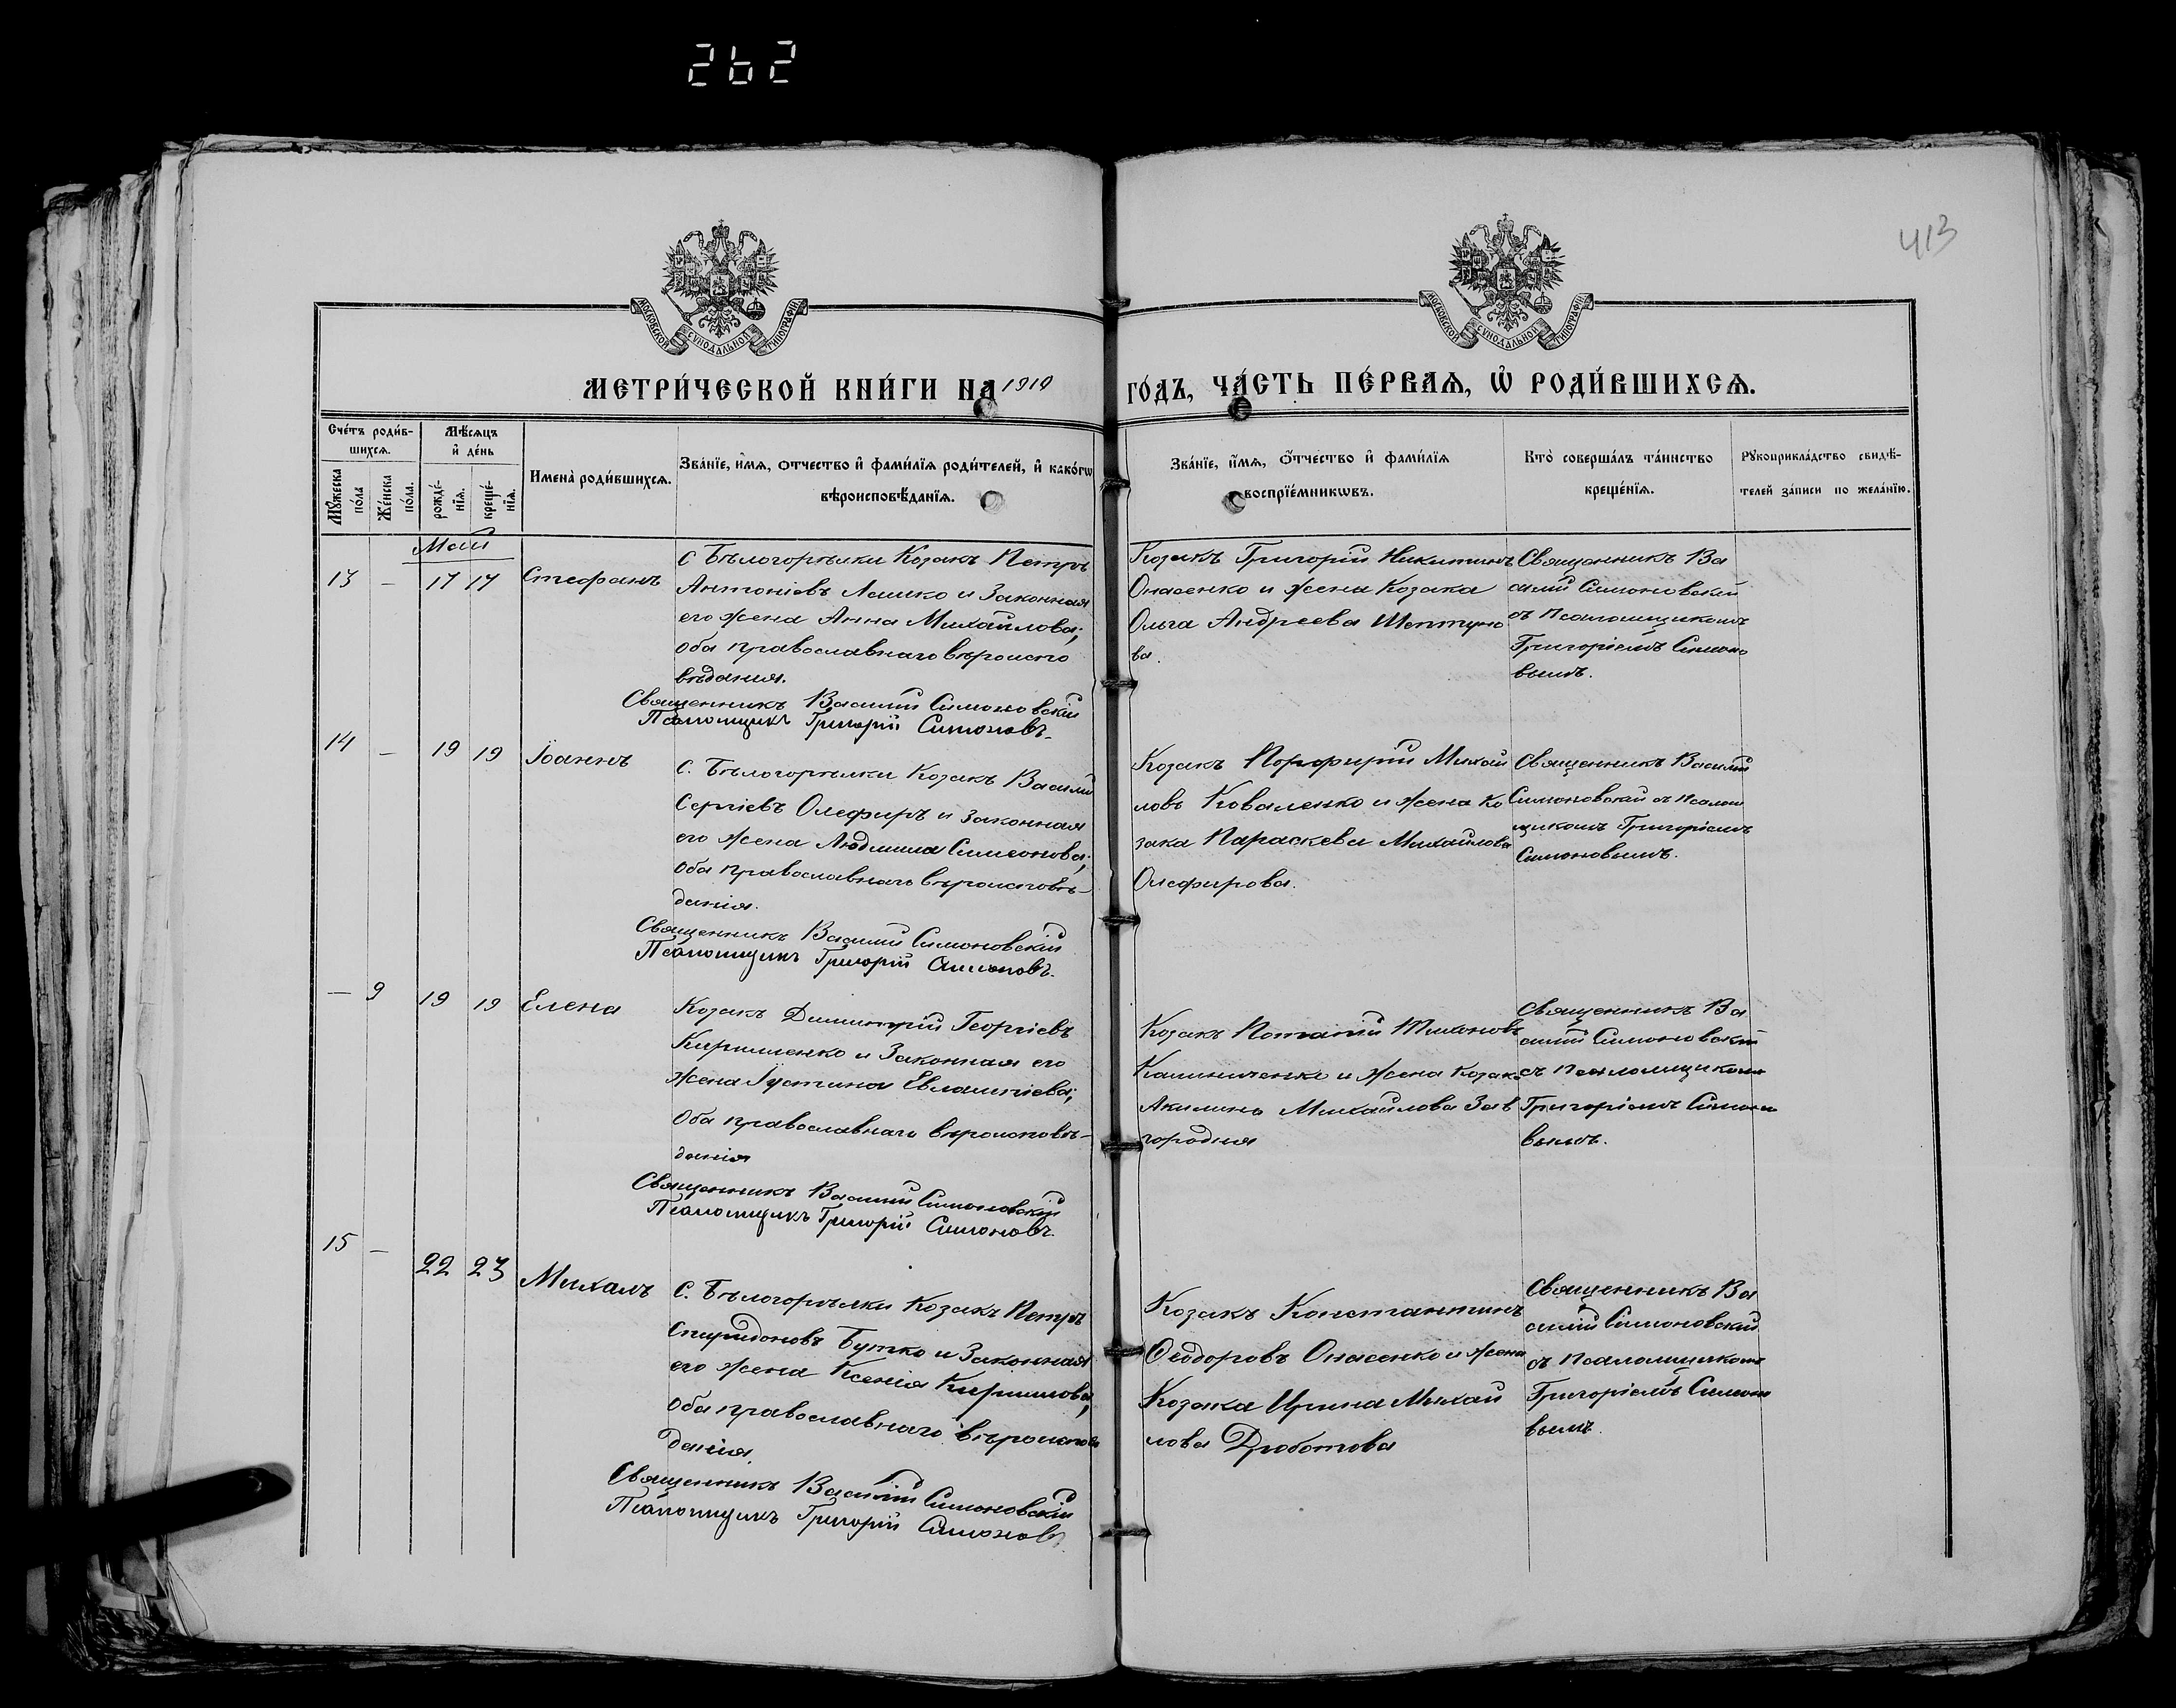 262
413
МОСКОВСКОЙ СѴНОДАЛЬНОЙ ТИПОГРАФІИ
МОСКОВСКОЙ СѴНОДАЛЬНОЙ ТИПОГРАФІИ
МЕТРИ́ЧЕСКОЙ КНИ́ГИ НА 1919 ГО́ДЪ, ЧА́СТЬ ПЕ́РВАѦ, Ѡ҆ РОДИ́ВШИХСѦ.
Сче́тъ роди́в-
шихсѧ.
Мꙋ́жеска по́ла
Же́нска по́ла.
Мѣ́сѧцъ
и҆ де́нь
рожде́-
нїѧ.
креще́-
нїѧ.
Имена̀ роди́вшихсѧ.
Зва́нїе, и҆́мѧ, ѻтчество и҆ фами́лїѧ роди́телей, и҆ како́гѡ
вѣроисповѣ́данїѧ.
Зва́нїе, и҆́мѧ, ѻ҆́тчество и҆ фами́лїѧ
воспрїе́мникѡвъ.
Кто̀ соверша́лъ та́инство
креще́нїѧ.
Рꙋкоприкла́дство свидѣ́-
телей за́писи по жела́нїю.
Май
13 — 17 17 Стефанъ
С Бѣлогорѣлки Козакъ Петръ
Антоніевъ Лашко и Законная
его жена Анна Михайлова;
оба православнаго вѣроиспо
вѣдания.
Священникъ Василій Симоновскій
Псаломщикъ Григорій Симоновъ.
Козакъ Григорій Никитинъ
Опасенко и жена Козака
Ольга Андреева Шептуно
ва.
Священникъ Ва
силій Симоновскій
съ Псаломщикомъ
Григоріемъ Симоно
вымъ.
14 — 19 19 Іоаннъ
С. Бѣлогорѣлки Козакъ Василій
Сергіевъ Олефиръ и законная
его жена Людмила Симеонова;
оба православнаго вѣроисповѣ-
данія.
Священникъ Василій Симоновскій
Псаломщикъ Григорій Симоновъ.
Козакъ Порфирій Михай
ловъ Коваленко и жена Ко
зака Параскева Михайлова
Олефирова.
Священникъ Василій
Симоновскій съ Псалом
щикомъ Григоріемъ
Симоновымъ.
— 9 19 19 Елена
Козакъ Димитрій Георгіевъ
Кириленко и Законная его
жена Іустина Евлампіева;
Оба православнаго вѣроисповѣ-
данія
Священникъ Василій Симоновскій
Псаломщикъ Григорій Симоновъ.
Козакъ Потапій Тихоновъ
Калиниченко и жена Козака
Акилина Михайлова Зав
городняя
Священникъ Ва
силій Симоновскій
съ Псаломщикомъ
Григоріемъ Симоно
вымъ.
15 — 22 23 Михаилъ
С. Бѣлогорѣлки Козакъ Петръ
Спиридоновъ Бутко и Законная
его жена Ксенія Кириллова,
оба православнаго вѣроисповѣ
данія.
Священникъ Василій Симоновскій
Псаломщикъ Григорій Симоновъ.
Козакъ Константинъ
Ѳеодоровъ Опасенко и жена
Козака Ирина Михай
лова Дроботова
Священникъ Ва
силій Симоновский
съ Псаломщикомъ
Григоріемъ Симоно
вымъ.